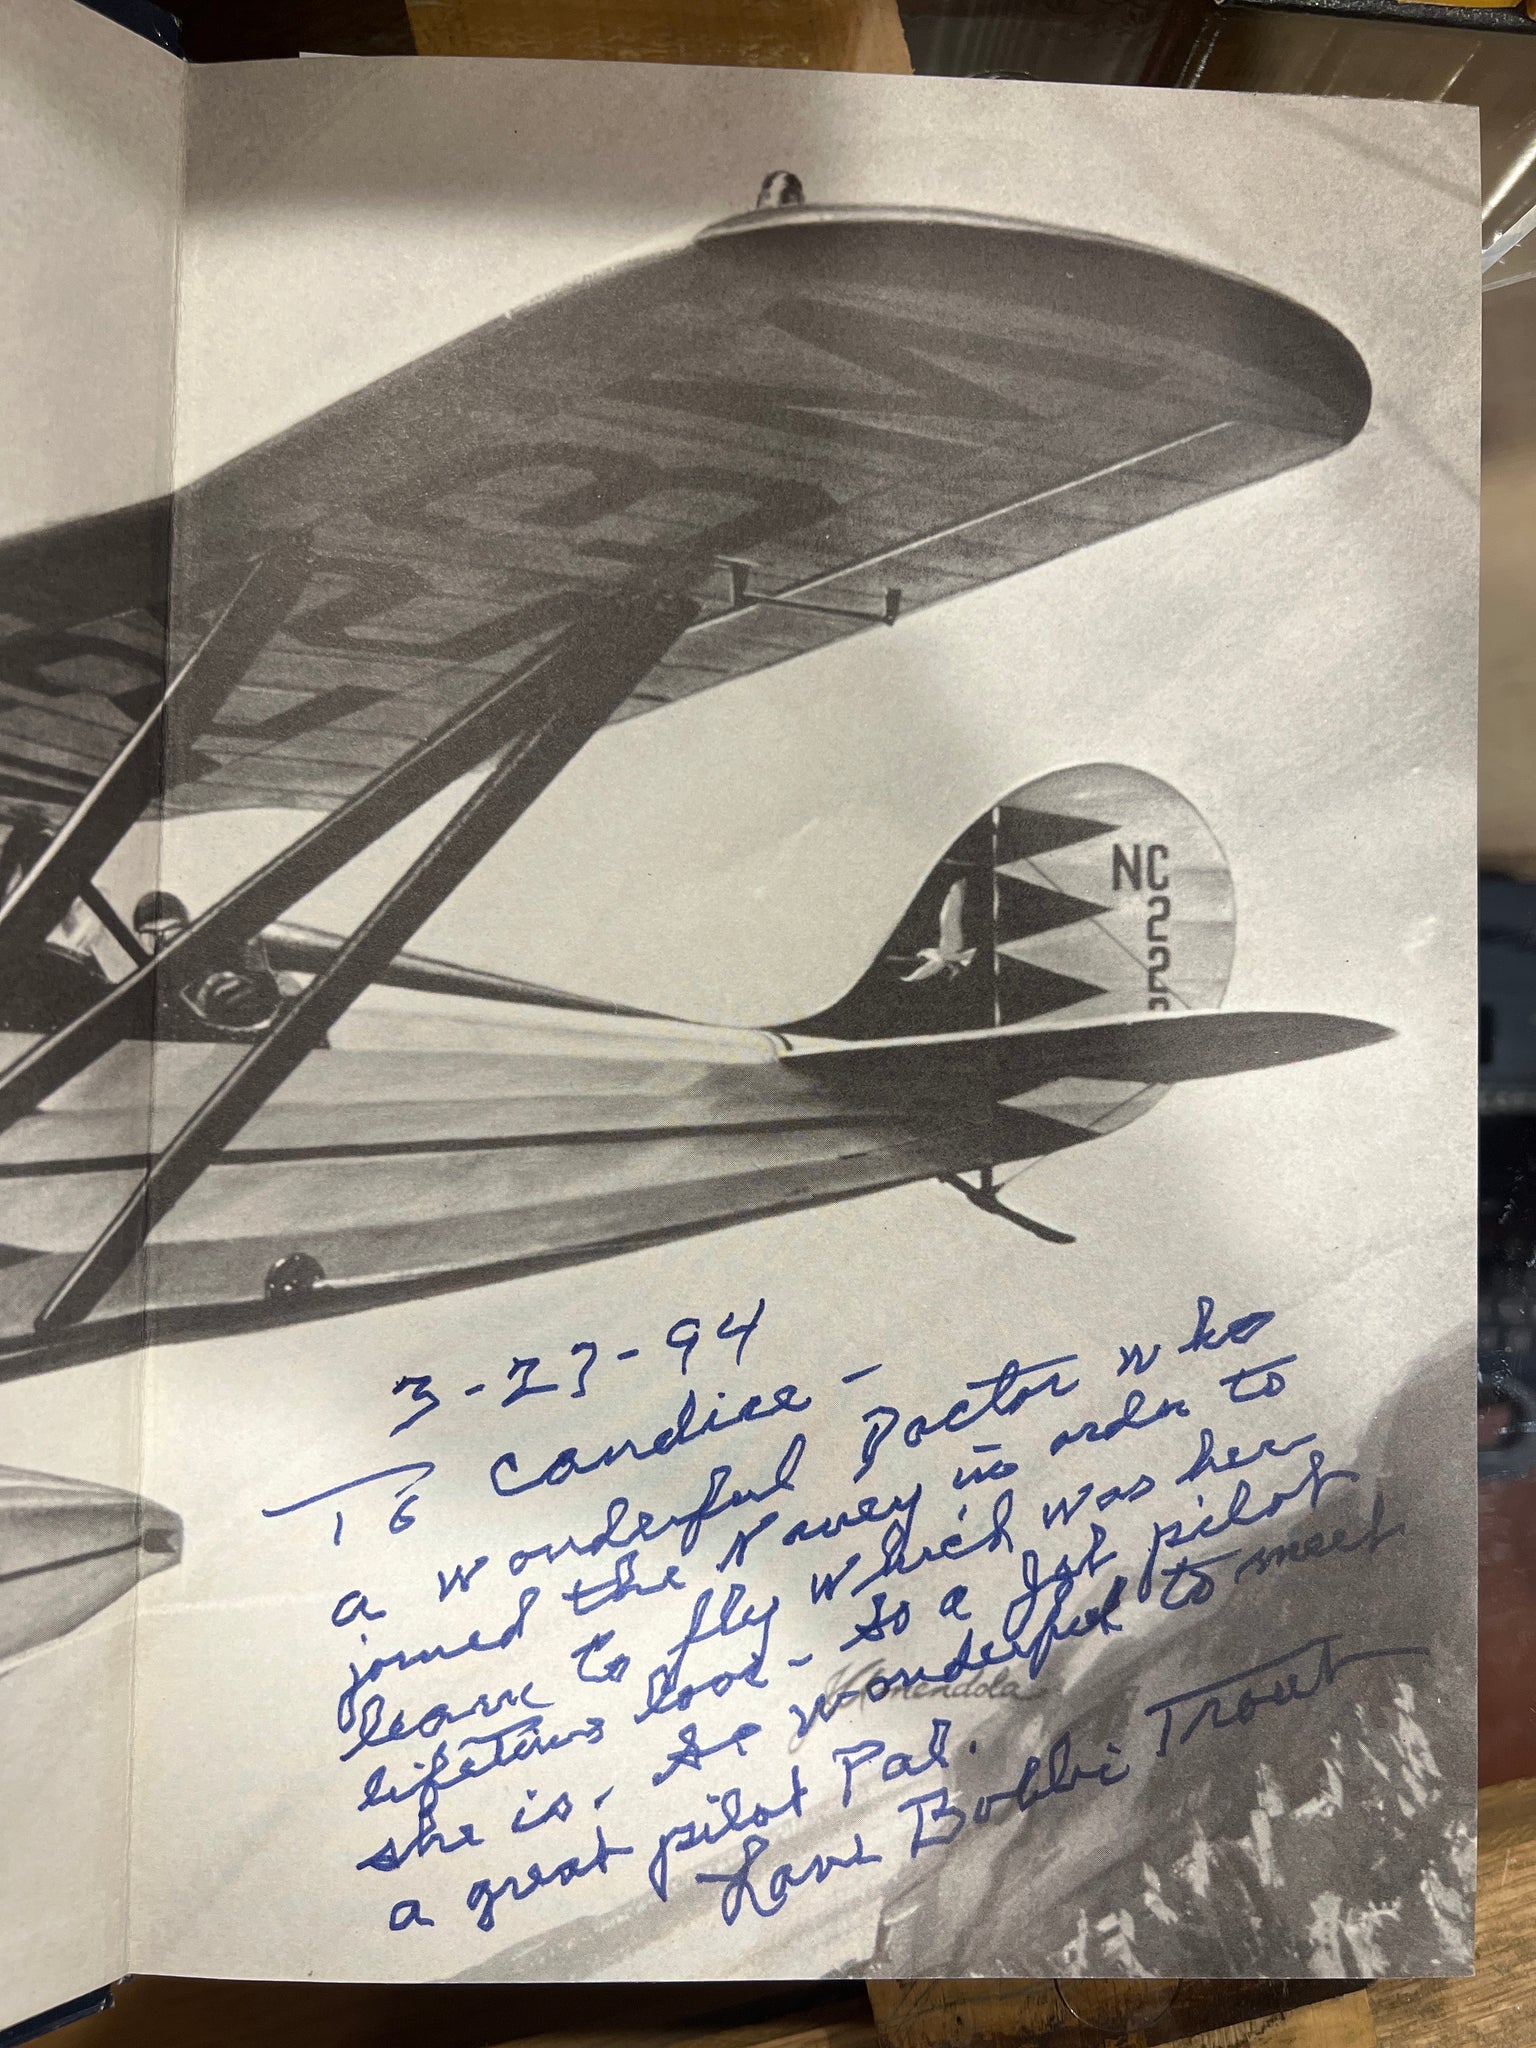 NC
2
2
3-23-94
To Candice -
a wonderful Doctor who
joined the Navey in order to
learn to fly which was her
lifetime love - So a Jet pilot
she is. So wonderful to meet
a great pilot Pal.
Love Bobbi Trout
Amendola